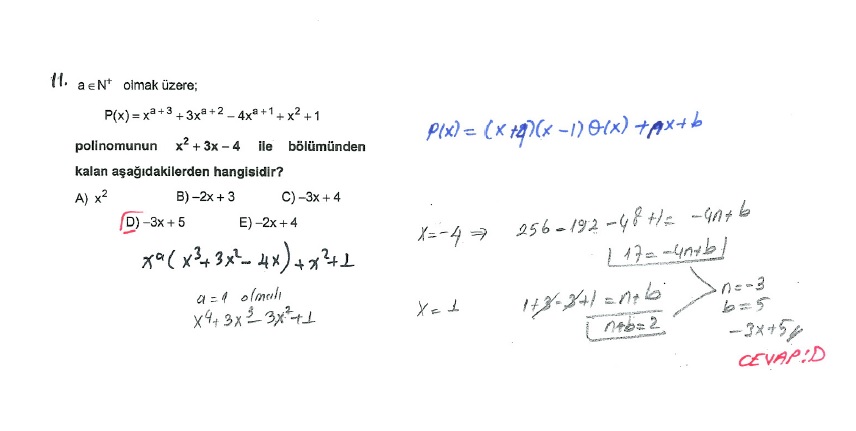 11. a ∈ N⁺ olmak üzere;
P(x) = xᵃ⁺³ + 3xᵃ⁺² – 4xᵃ⁺¹ + x² + 1
polinomunun x² + 3x – 4 ile bölümünden
kalan aşağıdakilerden hangisidir?
A) x² B) –2x + 3 C) –3x + 4
D) –3x + 5 E) –2x + 4
xᵃ(x³+3x²–4x)+x²+1
a=1 olmalı
x⁴+3x³–3x²+1
P(x) = (x+4)(x–1)Θ(x)+nx+b
x=–4 ⇒ 256–192–48+1= –4n+b
17= –4n+b
x=1 1+3–3+1=n+b
n+b=2
n=–3
b=5
–3x+5
CEVAP:D